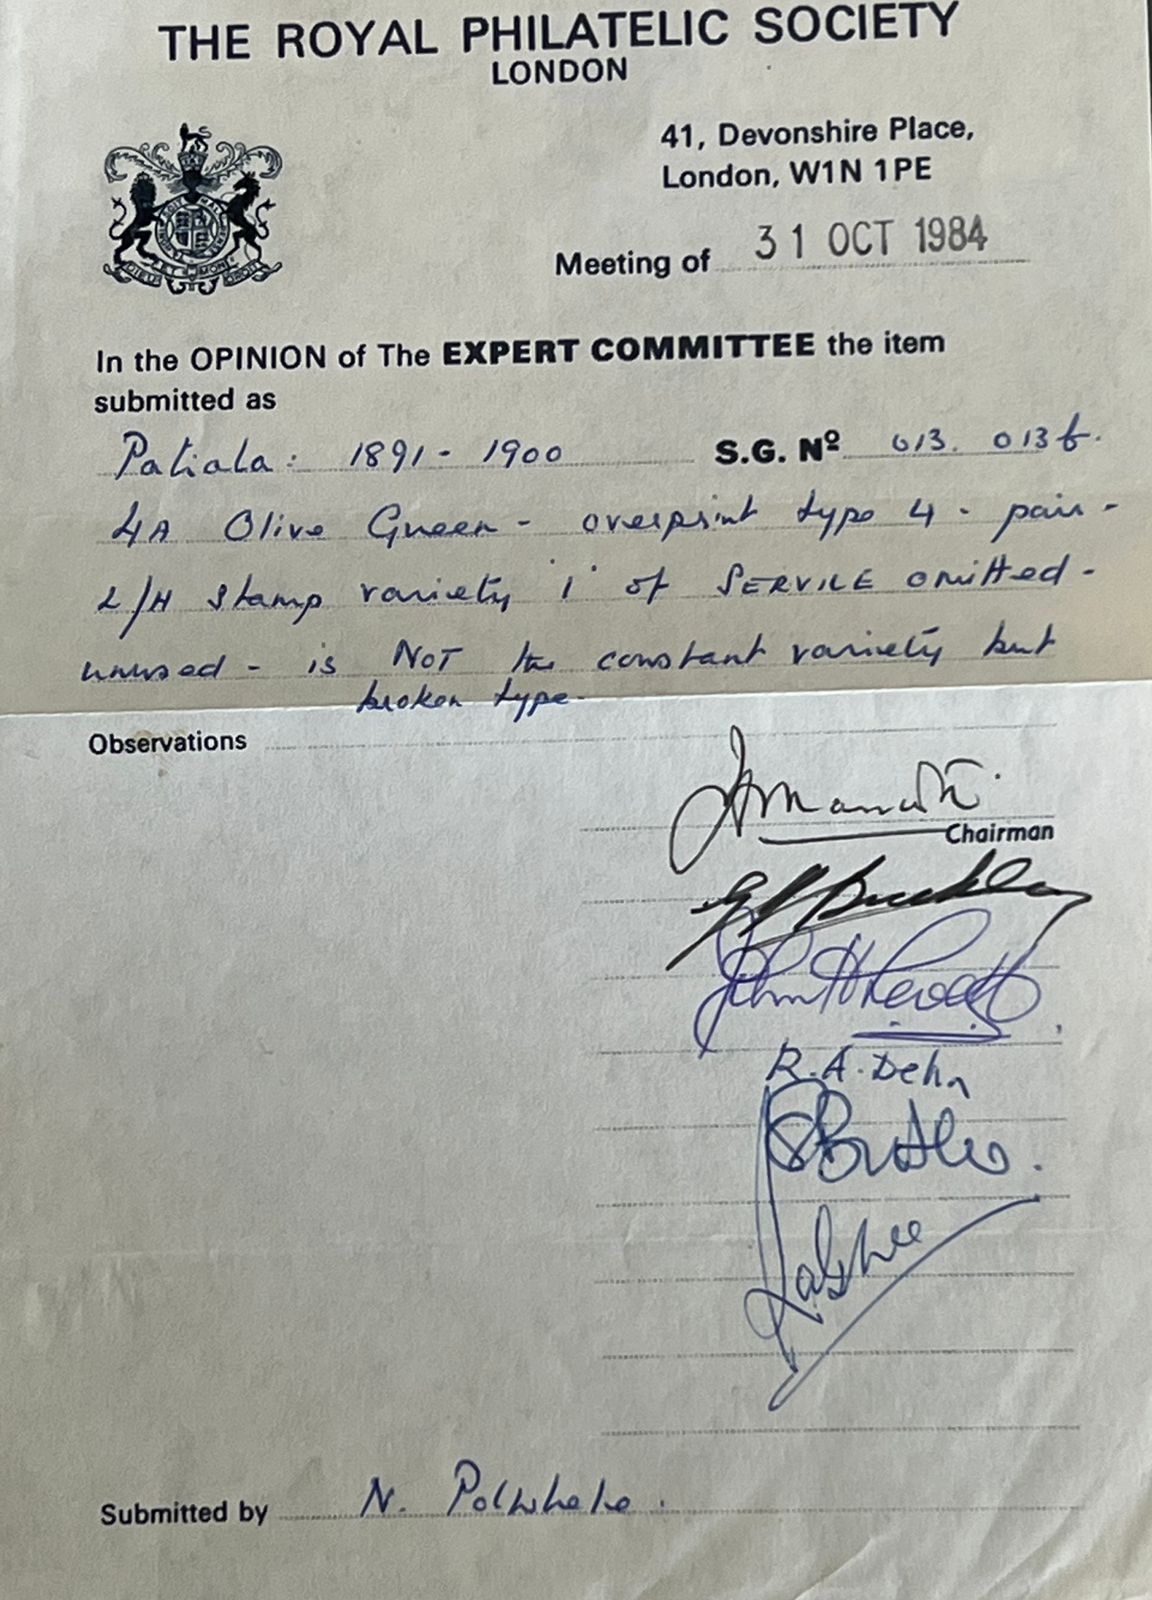 THE ROYAL PHILATELIC SOCIETY
LONDON
41, Devonshire Place,
London, W1N 1PE
Meeting of 31 OCT 1984
In the OPINION of The EXPERT COMMITTEE the item
submitted as
Patiala: 1891 - 1900 S.G. Nº 013. 013b.
4A Olive Green - overprint type 4 - pair -
L/H stamp variety 'i' of SERVICE omitted -
unused - is NOT the constant variety but
broken type.
Observations
Chairman
John H Levett
R.A. Dehn
Submitted by N. Polwhele.